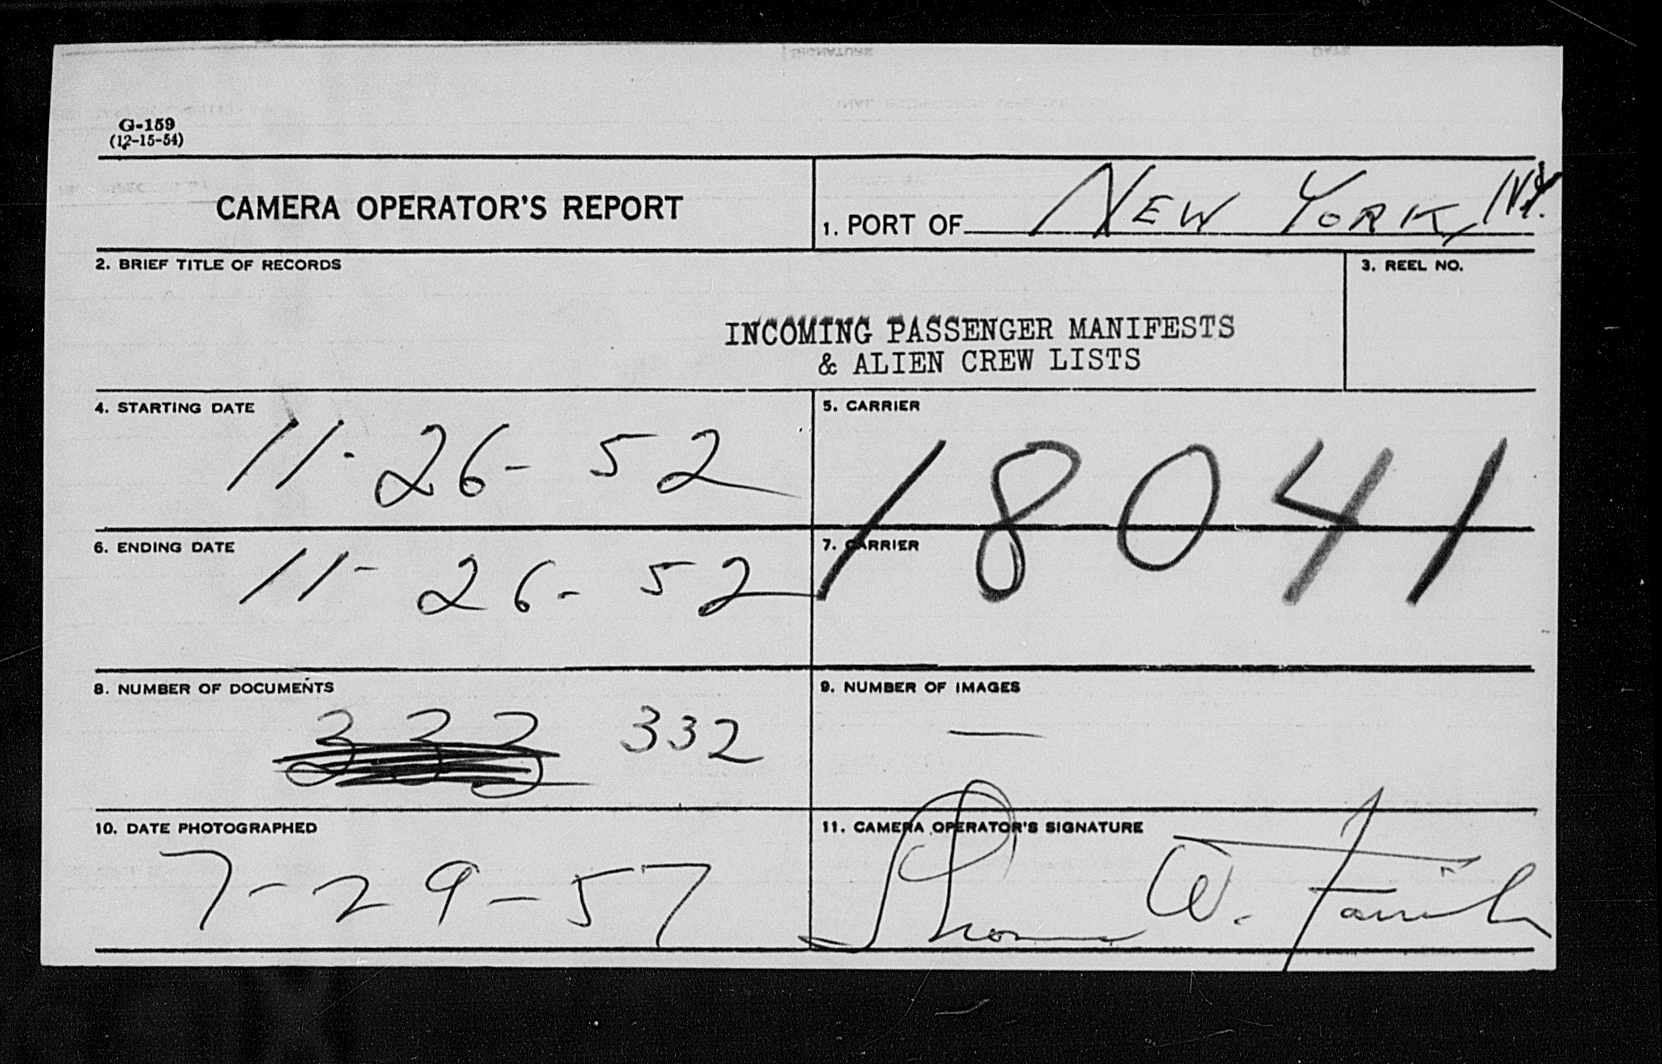 G-159
(12-15-54)
CAMERA OPERATOR'S REPORT
1. PORT OF NEW YORK, N.Y.
2. BRIEF TITLE OF RECORDS
INCOMING PASSENGER MANIFESTS
& ALIEN CREW LISTS
3. REEL NO.
4. STARTING DATE
11-26-52
5. CARRIER
18041
6. ENDING DATE
11-26-52
7. CARRIER
8. NUMBER OF DOCUMENTS
332
9. NUMBER OF IMAGES
—
10. DATE PHOTOGRAPHED
7-29-57
11. CAMERA OPERATOR'S SIGNATURE
Thomas W.